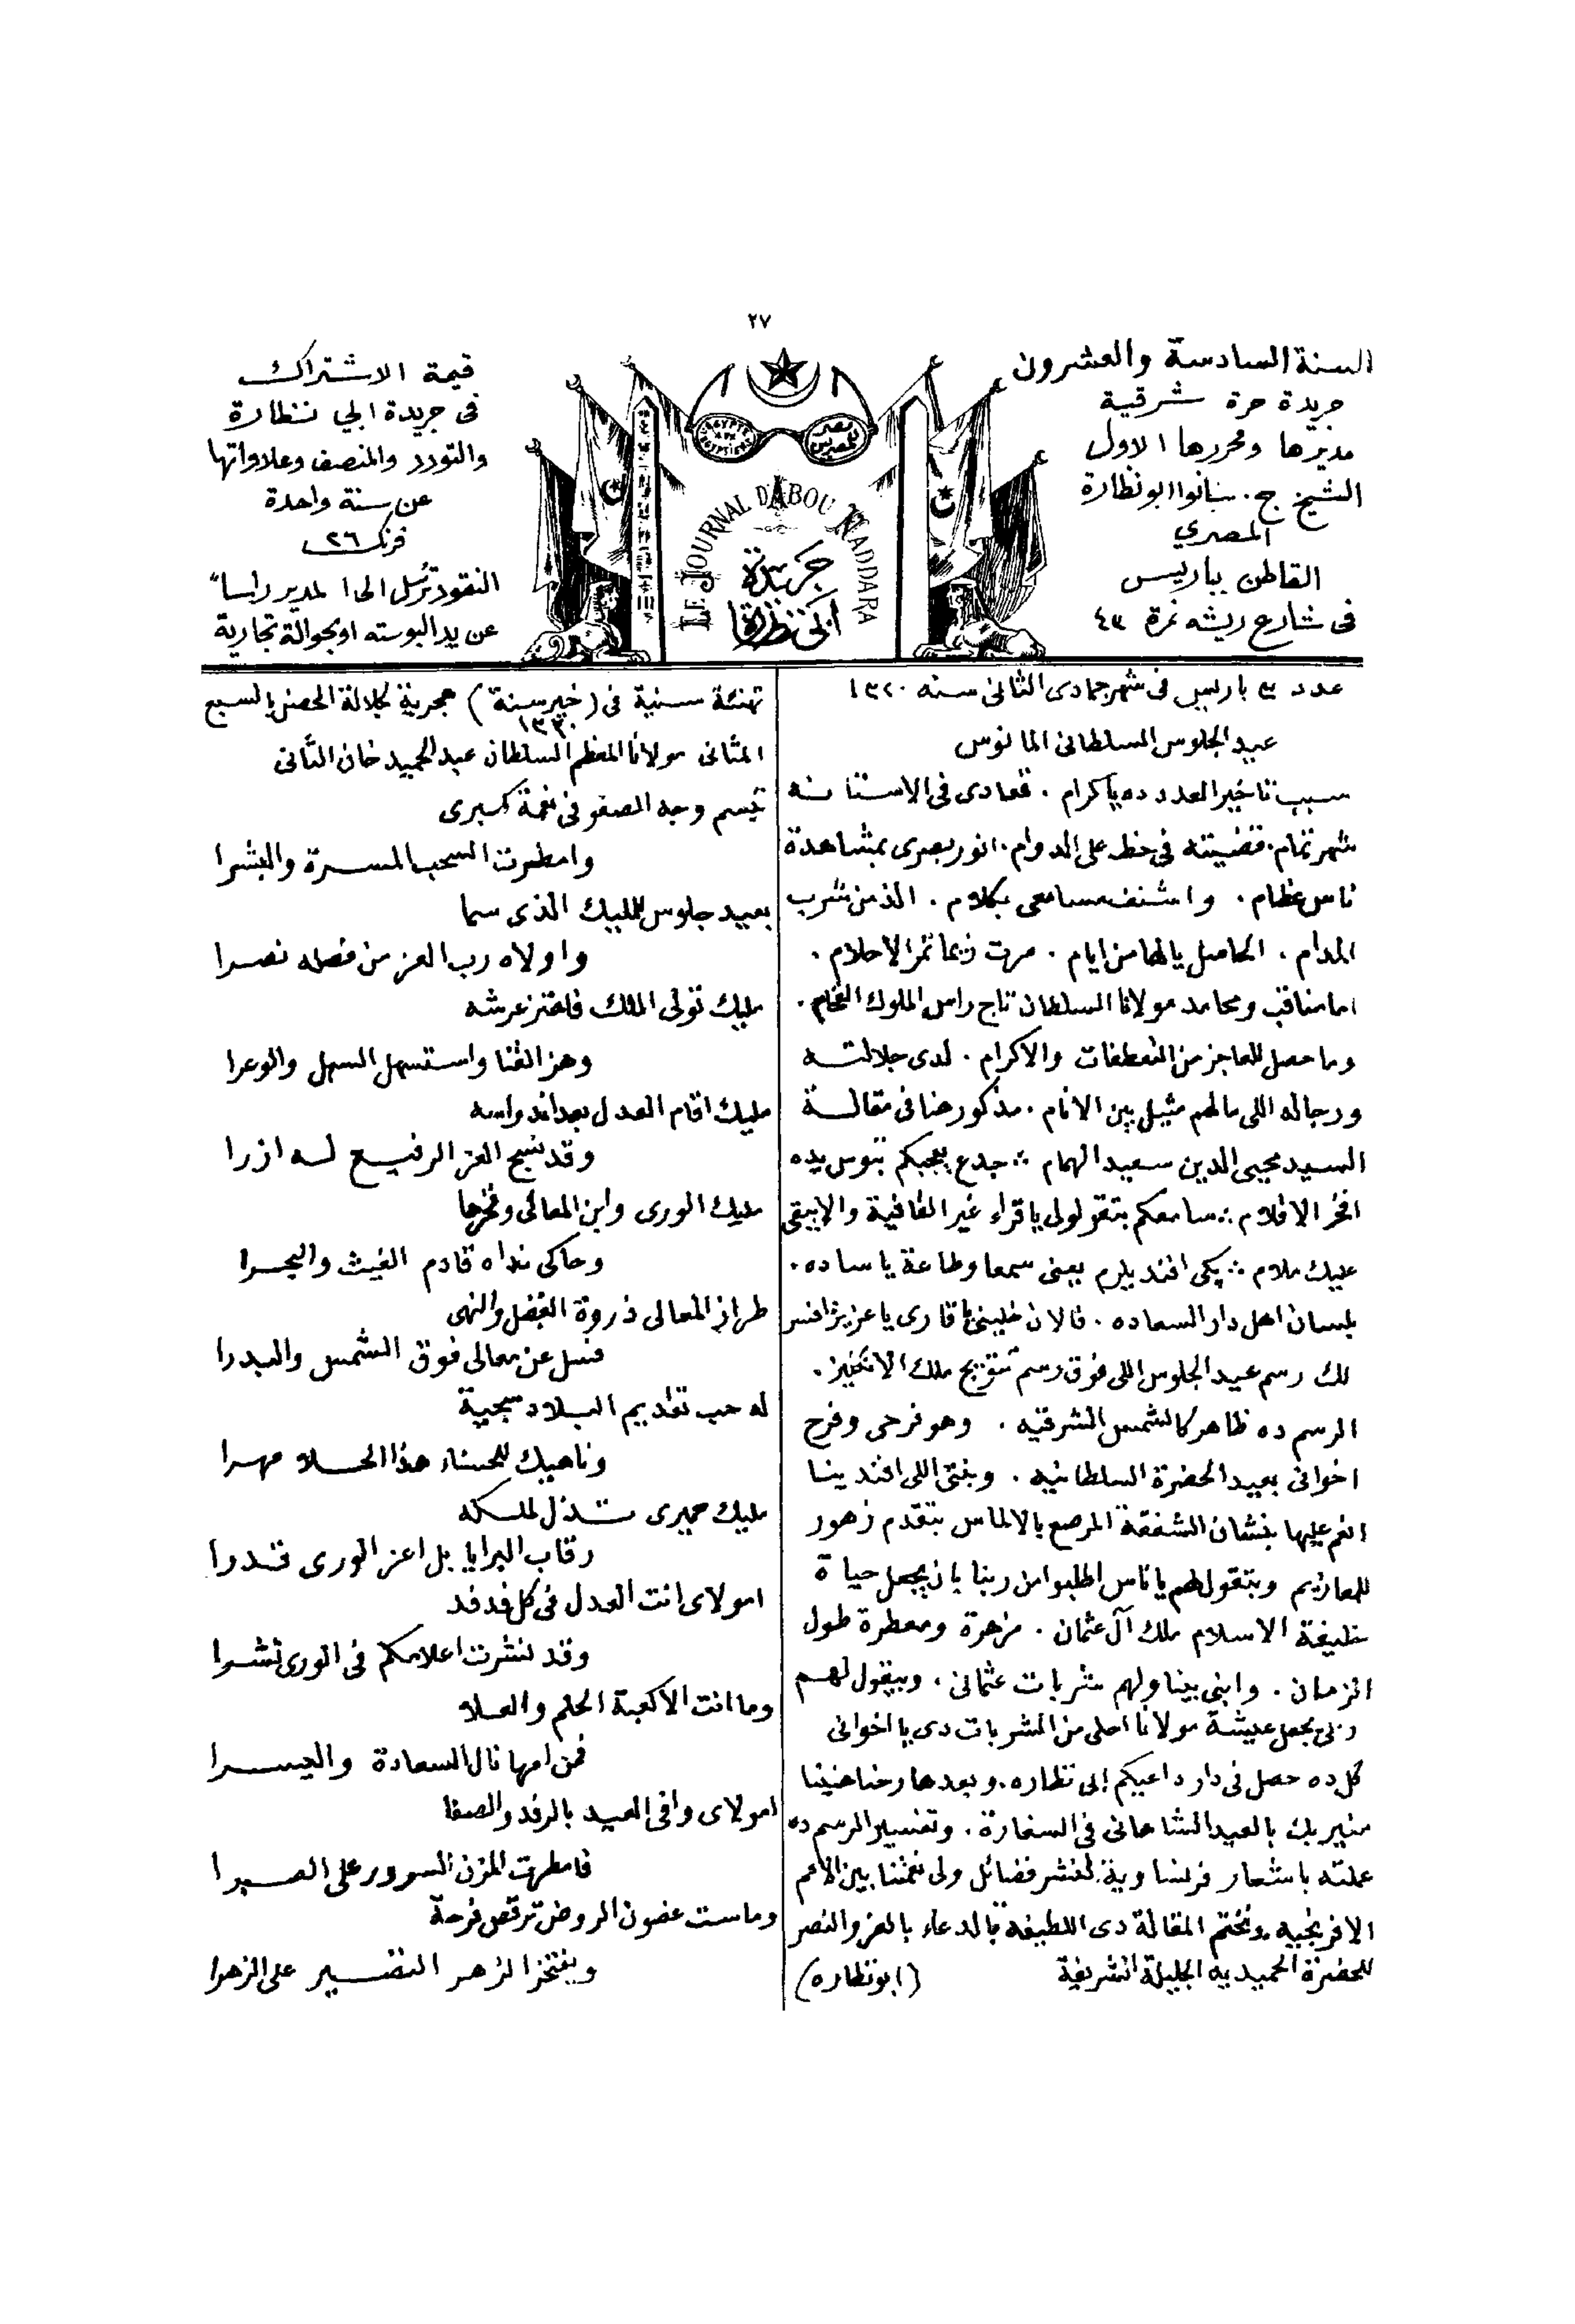 ٢٧
السنة السادسة والعشرون
جريدة حرة شرقية
مديرها ومحررها الاول
الشيخ ج. سانوا ابو نظارة
المصري
القاطن بباريس
فى شارع ريشه نمرة ٤٣
مصر للمصريين
L'EGYPTE AUX EGYPTIENS
LE JOURNAL D'ABOU NADDARA
جريدة
ابى نظارة
قيمة الاشتراك
فى جريدة ابي نظارة
والتودد والمنصف وعلاواتها
عن سنة واحدة
فرنك ٢٦
النقود ترسل الى المدير راسا
عن يد البوسته او بحوالة تجارية
عدد ٣ باريس فى شهر جمادى الثانى سنه ١٣٢٠
عيد الجلوس السلطانى المانوس
سبب تاخير العدد ده ياكرام . قعادى فى الاستانه
شهر تمام . قضيته فى حظ على الدوام . انور بصرى بمشاهدة
ناس عظام . واشنف مسامعى بكلام . الذ من شرب
المدام . الحاصل يالها من ايام . مرت زيما تمر الاحلام .
اما مناقب ومحامد مولانا السلطان تاج راس الملوك الفخام .
وما حصل للعاجز من التعطفات والاكرام . لدى جلالته
ورجاله اللى مالهم مثيل بين الانام . مذكور هنا فى مقالة
السيد محيى الدين سعيد الهمام ∴ جدع يعجبكم بتوس يده
افخر الاقلام ∴ سامعكم بتقولولى ياقراء غير القافية والا يبقى
عليك ملام ∴ پكى افنديلرم يعنى سمعا وطاعة يا ساده .
بلسان اهل دار السعاده . فالان خلينى يا قارى يا عزيز افسر
لك رسم عيد الجلوس اللى فوق رسم تتويج ملك الانكليز .
الرسم ده ظاهر كالشمس الشرقيه . وهو فرحى وفرح
اخوانى بعيد الحضرة السلطانيه . وبنتى اللى افندينا
انعم عليها بنشان الشفقة المرصع بالالماس بتقدم زهور
للمعازيم وبتقول لهم ياناس اطلبوا من ربنا بان يجعل حياة
خليفة الاسلام ملك آل عثمان . مزهرة ومعطرة طول
الزمان . وابنى بيناولهم شربات عثمانى . وبيقول لهم
ربى يجعل عيشة مولانا احلى من الشربات دى يا اخوانى
كل ده حصل فى دار داعيكم ابى نظاره . وبعدها رحنا هنينا
منير بك بالعيد الشاهانى فى السفارة . وتفسير الرسم ده
عملته باشعار فرنساوية لنشر فضائل ولى نعمتنا بين الامم
الافرنجيه . ونختم المقالة دى اللطيفة بالدعاء بالعز والنصر
للحضرة الحميديه الجليلة الشريفة (ابو نظاره)
تهنئة سنية فى (خير سنة) هجرية لجلالة الحصن بالسبع
١٣٢٠
المثانى مولانا المعظم السلطان عبد الحميد خان الثانى
تبسم وجه الصفو فى نعمة كبرى
وامطرت السحب المسرة والبشرا
بعيد جلوس للمليك الذى سما
واولاه رب العز من فضله نصرا
مليك تولى الملك فاهتز عرشه
وهز القنا واستسهل السهل والوعرا
مليك اقام العدل بعد اندراسه
وقد نسج العز الرفيع له ازرا
مليك الورى وابن المعالى وفخرها
وحاكى نداه قادم الغيث والبحرا
طراز المعالى ذروة الفضل والنهى
فسل عن معالى فوق الشمس والبدرا
له حب تقديم البلاد سجية
وناهيك للحسناء هذا الحلا مهرا
مليك حميرى تذل لملكه
رقاب البرايا بل اعز الورى قدرا
امولاى انت العدل فى كل فدفد
وقد نشرت اعلامكم فى الورى نشرا
وما انت الا كعبة الحلم والعلا
فمن امها نال السعادة واليسرا
امولاى وافى العيد بالرفد والصفا
فامطرت المزن السرور على
وماست غصون الروض ترقص فرحة
ويفتخر الزهر النضير على الزهرا